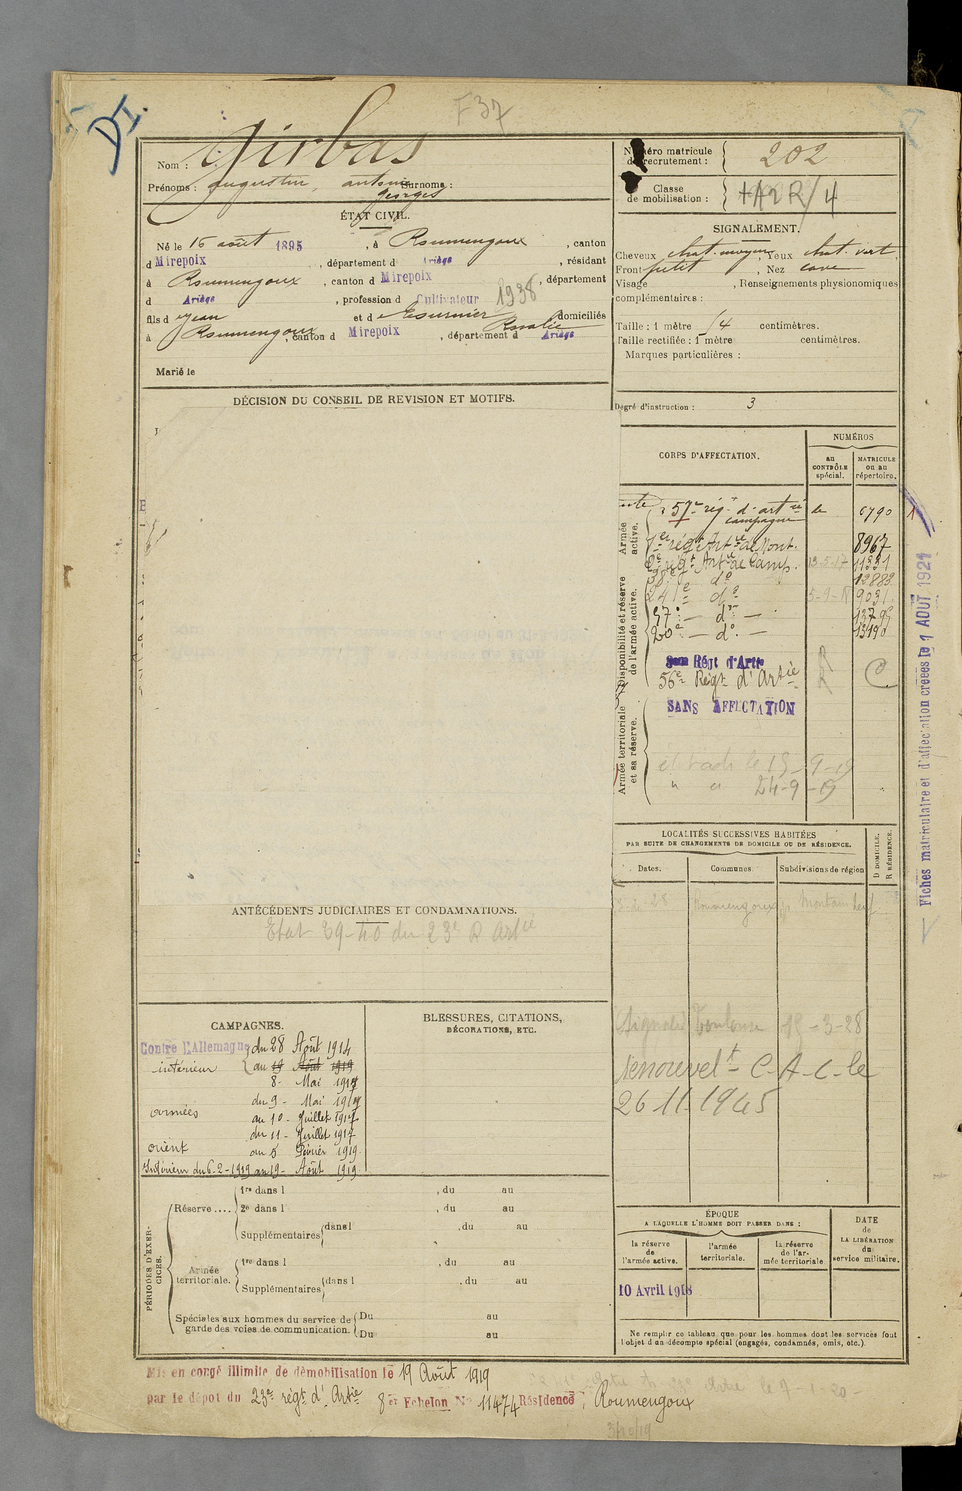 F37
DI.
Nom : Girbas
Prénoms : augustin, antoine Georges Surnoms :
ÉTAT CIVIL.
Né le 16 août 1895, à Roumengoux, canton
d Mirepoix, département d Ariège, résidant
à Roumengoux, canton d Mirepoix, département
d Ariège, profession d Cultivateur 1938
fils d Jean et d Rosalie domiciliés
à Roumengoux, canton d Mirepoix, département d Ariège
Marié le
DÉCISION DU CONSEIL DE REVISION ET MOTIFS.
ANTÉCÉDENTS JUDICIAIRES ET CONDAMNATIONS.
Etat 29-40 du 23e R Artie
CAMPAGNES.
Contre L'Allemagne
intérieur du 28 Août 1914
au 19 Août 1919
8 - Mai 1917
armées du 9 - Mai 1917
au 10 - Juillet 1917
orient du 11 - Juillet 1917
au 5 Février 1919
Intérieur du 6-2-1919 au 19 - Août 1919
BLESSURES, CITATIONS,
DÉCORATIONS, ETC.
PÉRIODES D'EXERCICES.
Réserve .... 1re dans l , du au
2e dans l , du au
Supplémentaires dans l , du au
Armée territoriale. 1re dans l , du au
Supplémentaires dans l , du au
Spéciales aux hommes du service de garde des voies de communication. Du au
Du au
Numéro matricule de recrutement : 202
Classe de mobilisation :
SIGNALEMENT.
Cheveux chat. moyen, Yeux chat. vert
Front petit, Nez cave
Visage , Renseignements physionomiques
complémentaires :
Taille : 1 mètre 54 centimètres.
Taille rectifiée : 1 mètre centimètres.
Marques particulières :
Degré d'instruction : 3
CORPS D'AFFECTATION.
NUMÉROS
au CONTRÔLE spécial.
MATRICULE ou au répertoire.
Armée active.
57e rég.t d'artie campagne
1er régt Artie de Mont. 8967
2e régt Artie de Camp. 13-5-17 11331
38e do 12883
Disponibilité et réserve de l'armée active.
241e do 9031
57e - do -
20e - do - 13190
Régt d'Artie
56e Régt d'Artie
SANS AFFECTATION
Armée territoriale et sa réserve.
le 15-9-19
" " 24-9-19
LOCALITÉS SUCCESSIVES HABITÉES
PAR SUITE DE CHANGEMENTS DE DOMICILE OU DE RÉSIDENCE.
Dates.
Communes
Subdivisions de région
D DOMICILE.
R RÉSIDENCE.
Roumengoux
(Signalé) Toulouse 15-3-28
Renouvelt C.A.C. le
26 11 1945
ÉPOQUE
A LAQUELLE L'HOMME DOIT PASSER DANS :
la réserve de l'armée active.
l'armée territoriale.
la réserve de l'armée territoriale
DATE DE LA LIBÉRATION du service militaire.
10 Avril 1918
Ne remplir ce tableau que pour les hommes dont les services font
l'objet d'un décompte spécial (engagés, condamnés, omis, etc.).
Fiches matriculaire et d'affectation créées le 1 AOUT 1921
Mis en congé illimité de démobilisation le 19 Août 1919
par le dépôt du 23e régt d'Artie 8er Echelon No 11474 Résidence : Roumengoux
3/10/19